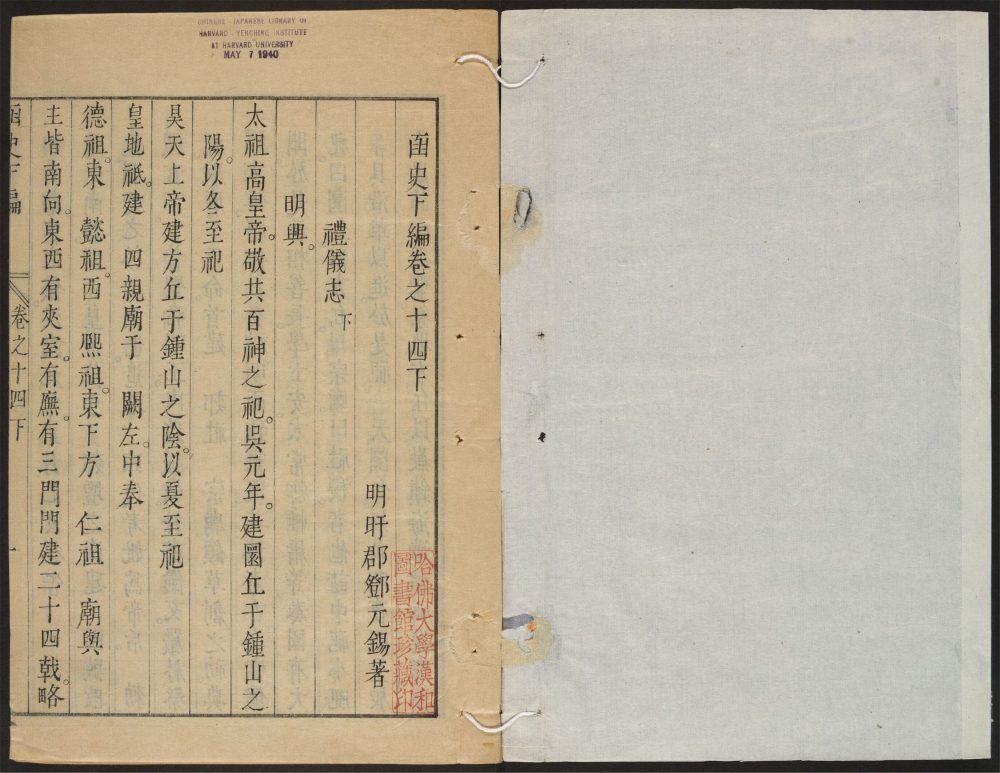 CHINESE - JAPANESE LIBRARY OF
HARVARD - YENCHING INSTITUTE
AT HARVARD UNIVERSITY
MAY 7 1940
函史下編卷之十四下
明旴郡鄧元錫著
禮儀志下
明興。
太祖高皇帝。敬共百神之祀。吳元年。建圜丘于鍾山之
陽。以冬至祀
昊天上帝建方丘于鍾山之陰。以夏至祀
皇地祇。建 四親廟于 闕左。中奉
德祖。東 懿祖。西 熈祖。東下方 仁祖 廟與
主皆南向。東西有夾室。有廡。有三門門建二十四戟。略
函史下編 卷之十四下 一
哈佛大學漢和
圖書館珍藏印